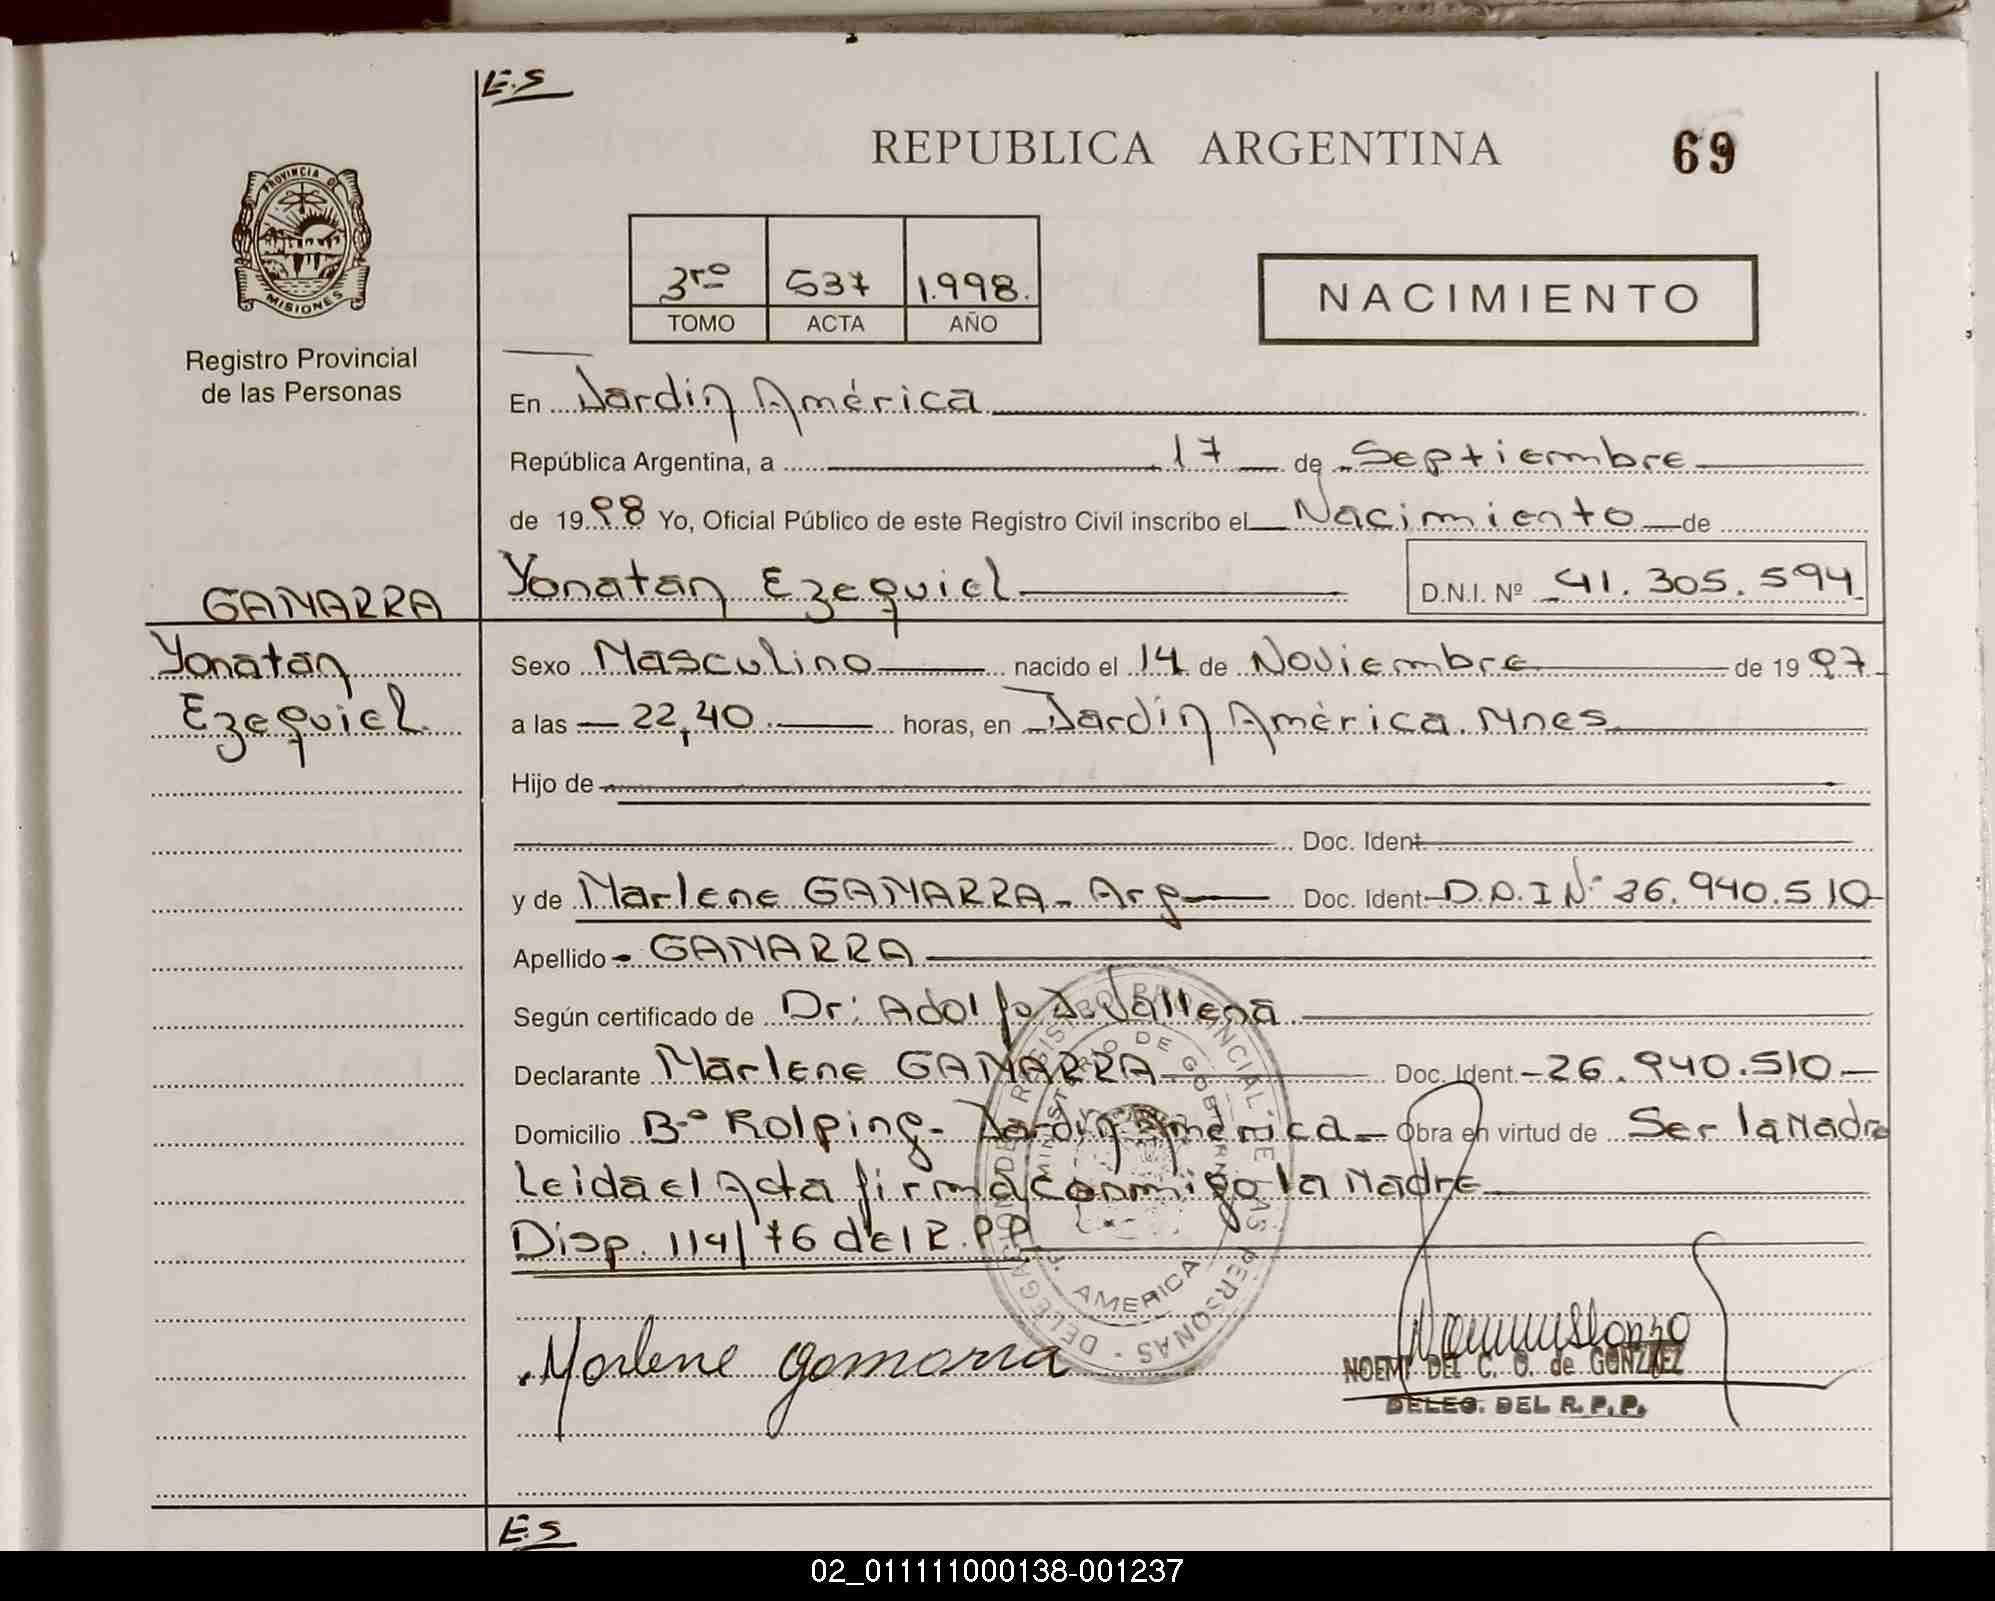 E.S
REPUBLICA ARGENTINA
69
PROVINCIA DE
MISIONES
Registro Provincial
de las Personas
3ro 537 1.998.
TOMO ACTA AÑO
NACIMIENTO
En Jardín América
República Argentina, a 17 de Septiembre
de 1998 Yo, Oficial Público de este Registro Civil inscribo el Nacimiento de
GAMARRA
Yonatan Ezequiel D.N.I. Nº 41.305.594
Yonatan
Ezequiel.
Sexo Masculino nacido el 14 de Noviembre de 1997
a las 22,40 horas, en Jardín América. Mnes
Hijo de
Doc. Ident.
y de Marlene GAMARRA - Arg Doc. Ident D.N.I Nº 26.940.510
Apellido GAMARRA
Según certificado de Dr: Adolfo
Declarante Marlene GAMARRA Doc. Ident. 26.940.510
Domicilio Bº Kolping - Jardín América Obra en virtud de Ser la Madre
Leida el Acta firma conmigo la Madre
Disp. 114/76 del R.P.P
DELEGA REGISTRO PROVINCIAL DE LAS PERSONAS
MINISTERIO DE GOBIERNO
AMERICA
Marlene gamarra
NOEMI DEL C. O. de GONZALEZ
DELEG. DEL R.P.P.
E.S
02_011111000138-001237